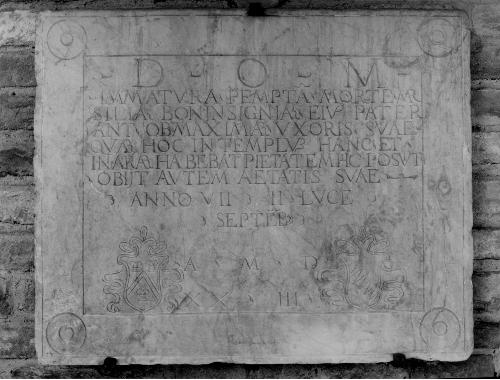 D O M
IMMATVRA PEMPTA MORTE
SILIA BONINSIGNIA EIVS PATER
ANT OB MAXIMA VXORIS SVAE
QVA HOC IN TEMPLV HANC ET
IN ARA HABEBAT PIETATEM HIC POSVT
OBIJT AVTEM AETATIS SVAE
ANNO VII II LVCE
SEPTEB
A M D
XX III
9 6